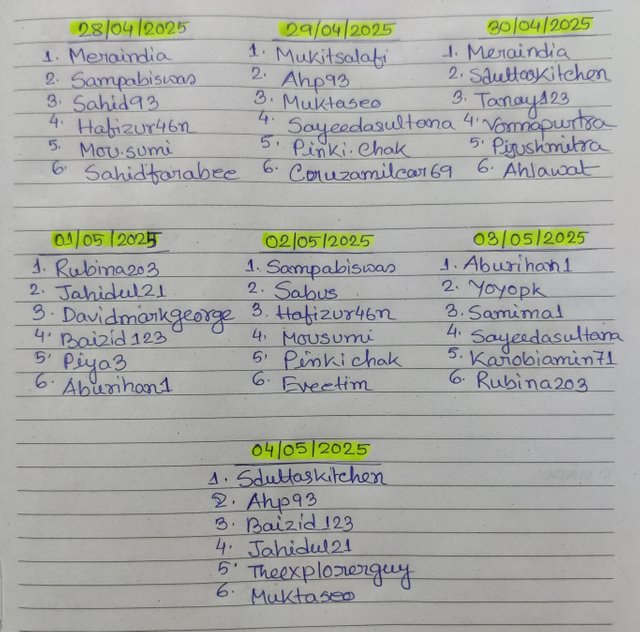 28/04/2025
1. Meraindia
2. Sampabiswas
3. Sahid93
4. Hafizur46n
5. Mou.sumi
6. Sahidfarabee
29/04/2025
1. Mukitsalafi
2. Ahp93
3. Muktaseo
4. Sayeedasultana
5. Pinki.chak
6. Coruzamilcar69
30/04/2025
1. Meraindia
2. Sduttaskitchen
3. Tanay123
4. Vonnapurtra
5. Piyushmitra
6. Ahlawat
01/05/2025
1. Rubina203
2. Jahidul21
3. Davidmarkgeorge
4. Baizid123
5. Piya3
6. Aburihan1
02/05/2025
1. Sampabiswas
2. Sabus
3. Hafizur46n
4. Mousumi
5. Pinkichak
6. Eveetim
03/05/2025
1. Aburihan1
2. Yoyopk
3. Samima1
4. Sayeedasultana
5. Karobiamin71
6. Rubina203
04/05/2025
1. Sduttaskitchen
2. Ahp93
3. Baizid123
4. Jahidul21
5. Theexplorerguy
6. Muktaseo